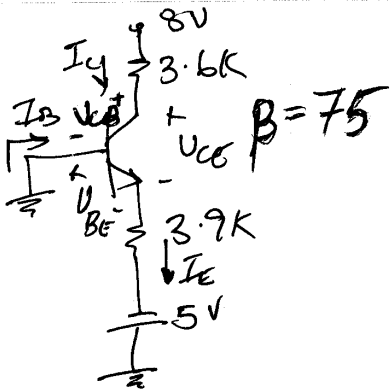 8V
IC
3.6K
IB
VCB+
-
+
VCE
β=75
+
VBE-
-
3.9K
IE
5V